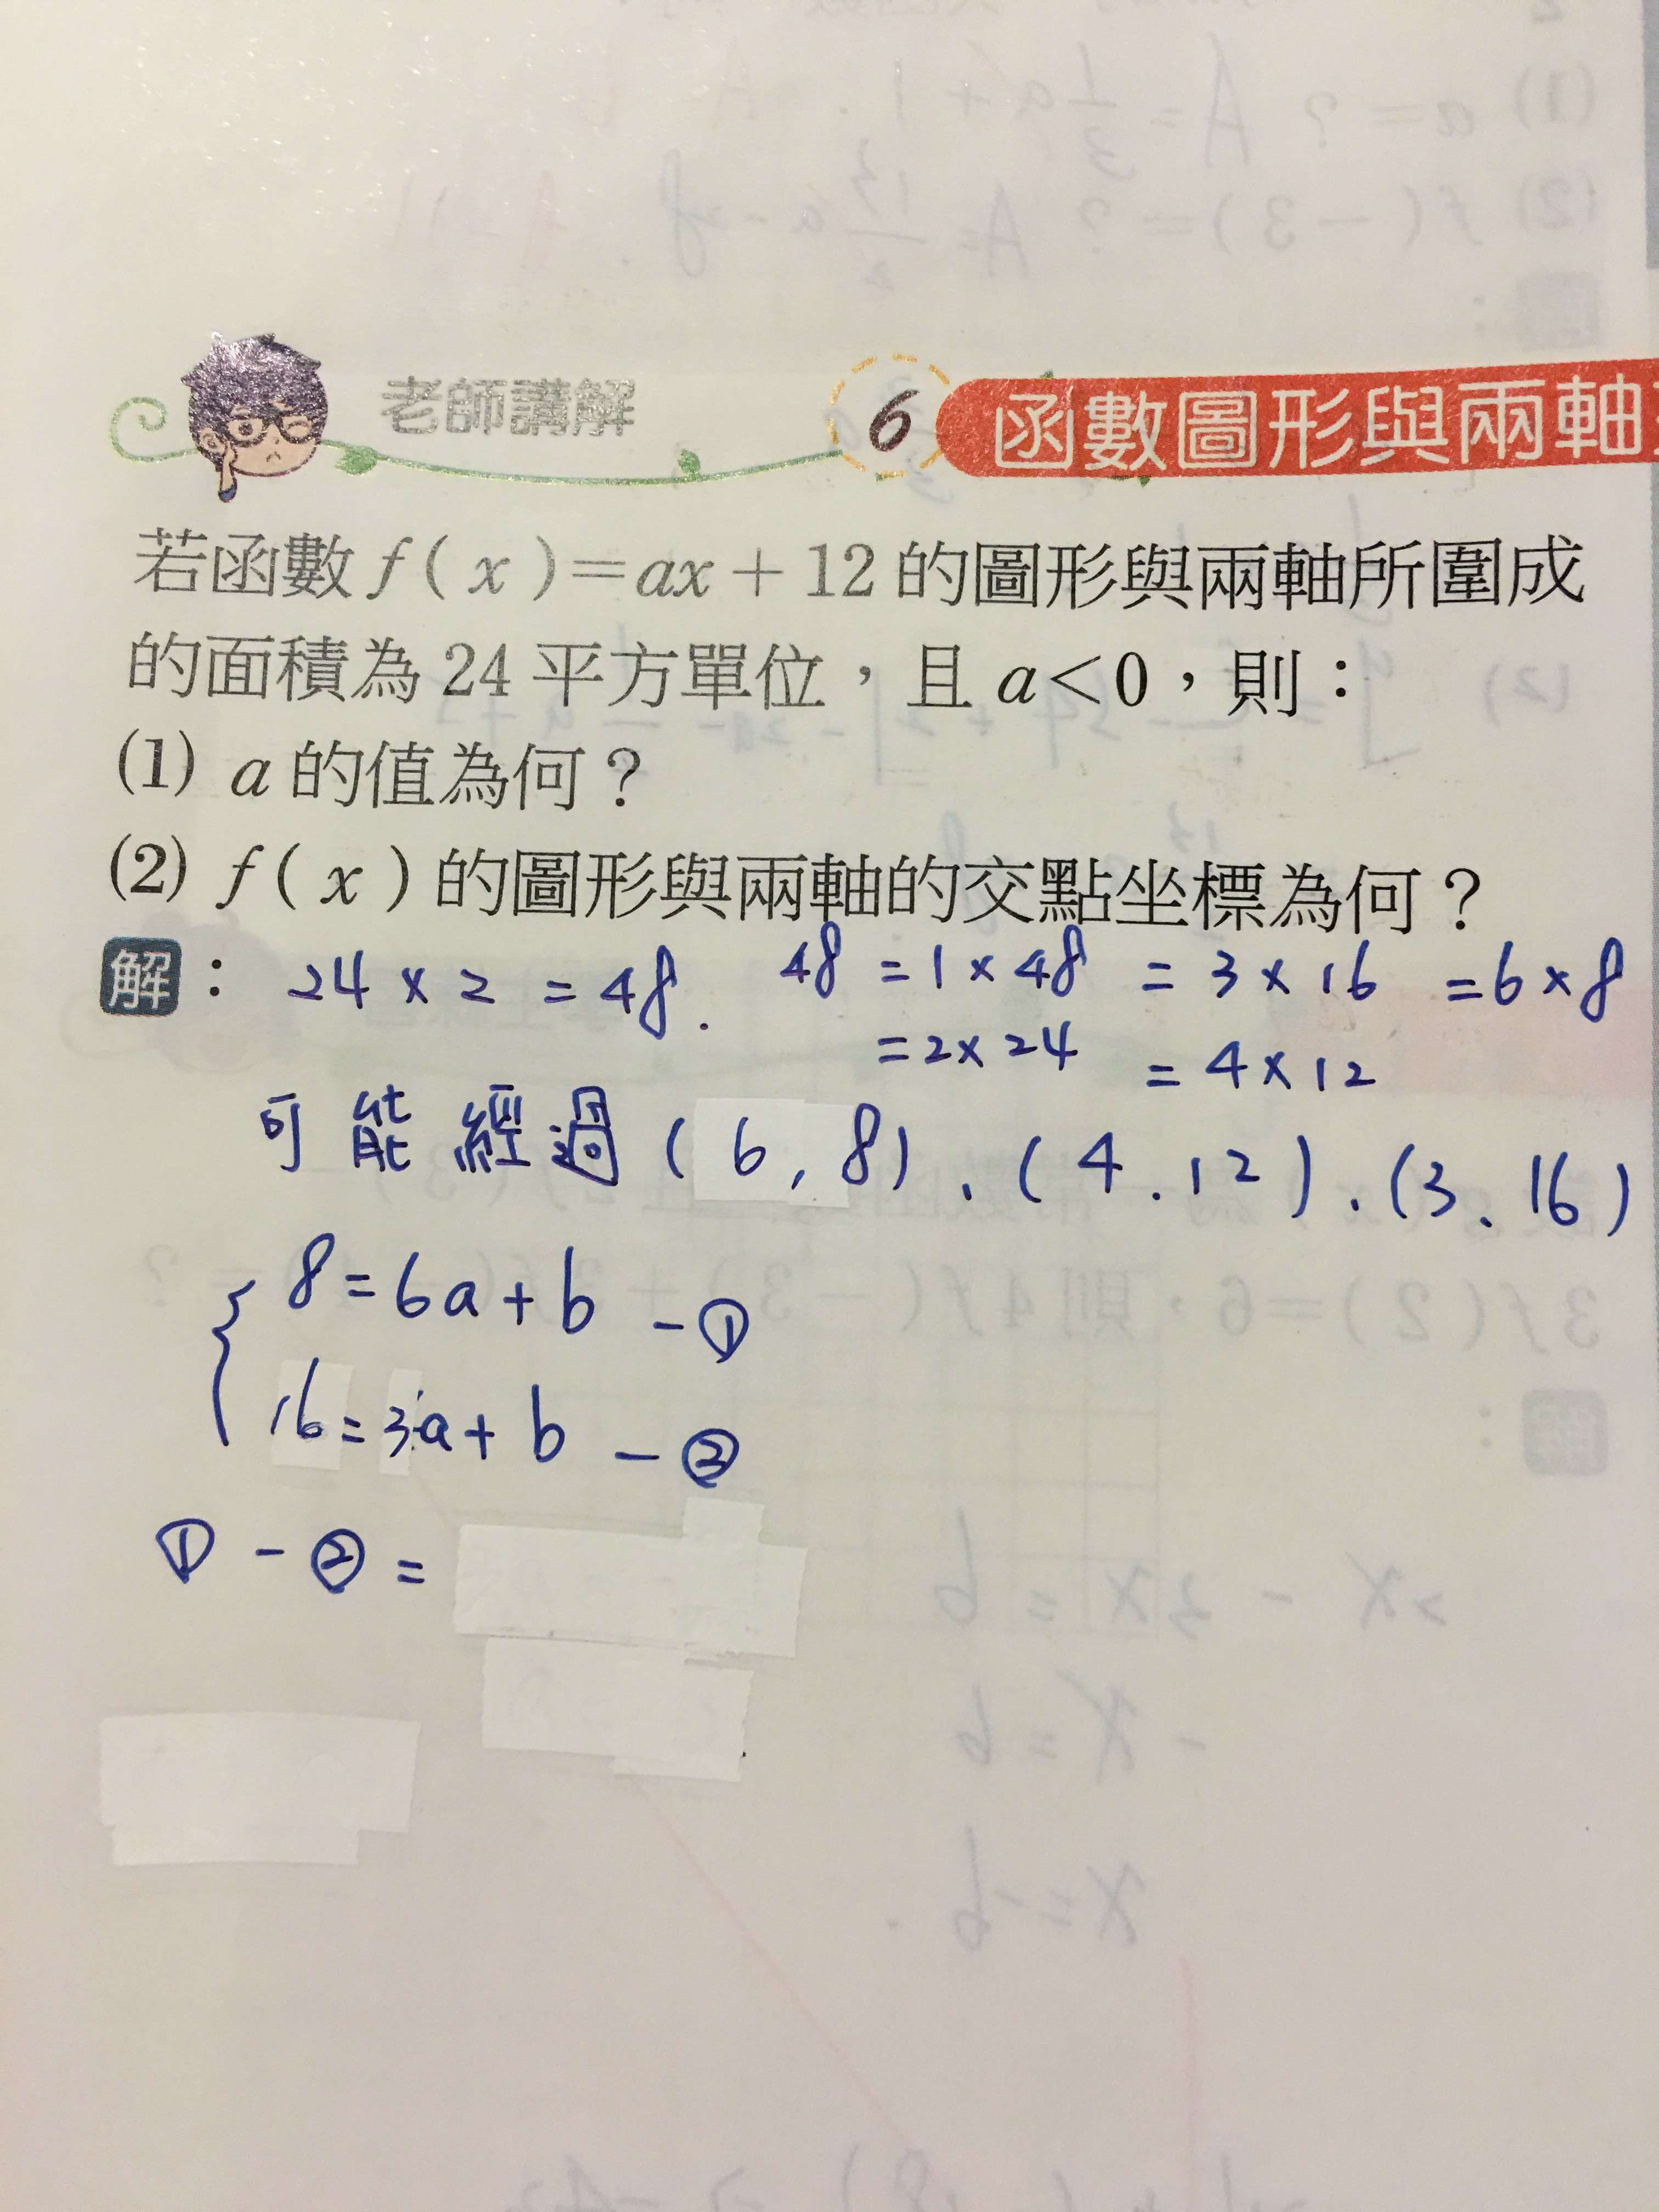 老師講解 6 函數圖形與兩軸
若函數 f(x)=ax+12 的圖形與兩軸所圍成
的面積為 24 平方單位，且 a<0，則：
(1) a 的值為何？
(2) f(x) 的圖形與兩軸的交點坐標為何？
解： 24×2=48. 48=1×48 =3×16 =6×8
=2×24 =4×12
可能經過(6,8)、(4.12)、(3、16)
8=6a+b -①
16=3a+b -②
①-②=